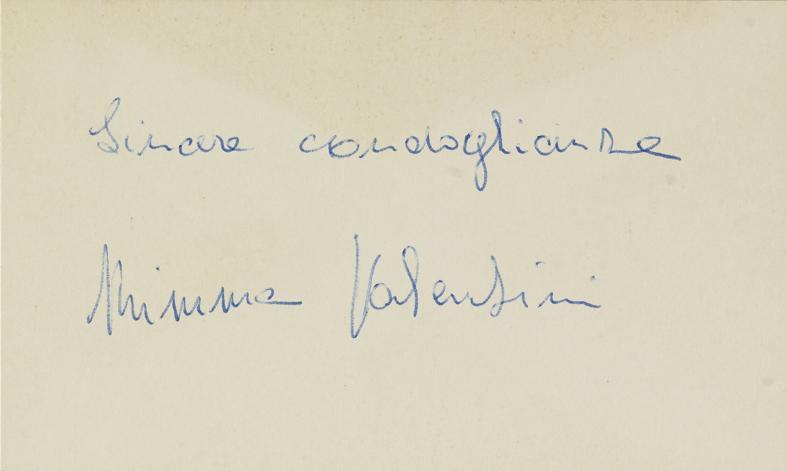 Sincere condoglianze
Mimma Valentini